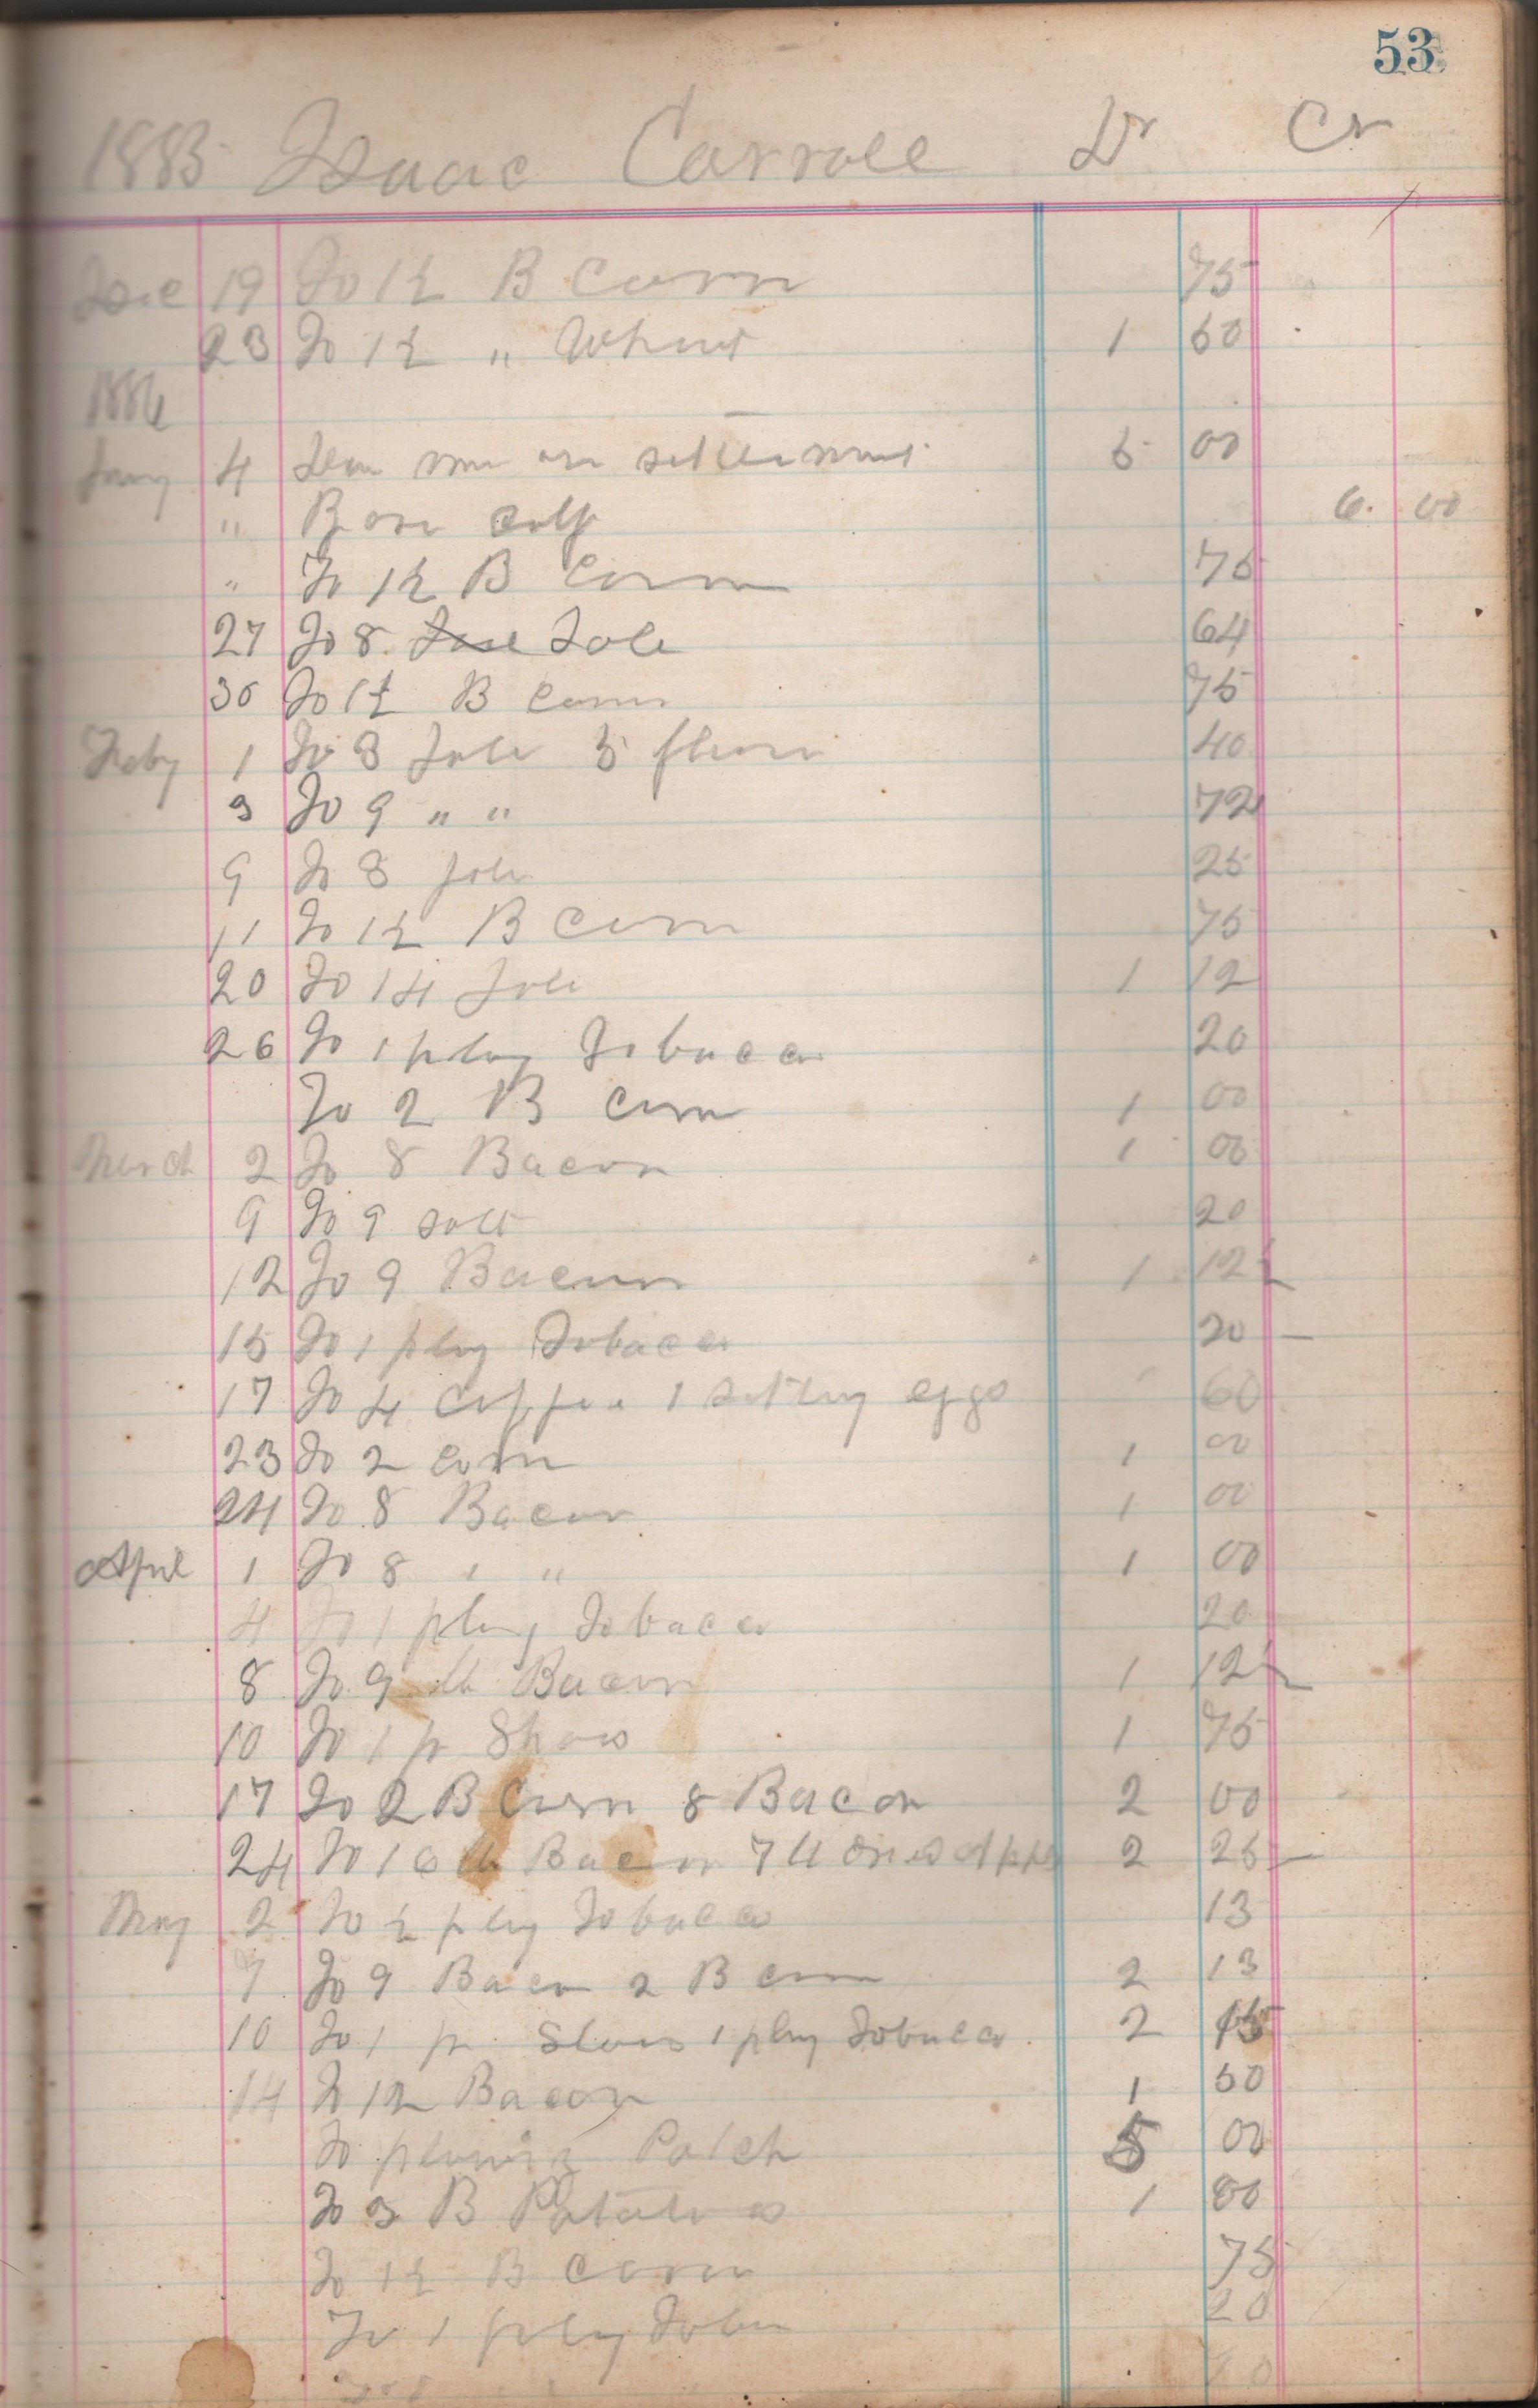 53
1885 Isaac Carroll Dr Cr
Dec 19 To 1½ B Corn 75
23 To 1½ " Wheat 1 50
1886
Jany 4 Due me on settlement 5 00
" By one calf 6 00
" To 1½ B Corn 75
27 To 8 Jole 64
30 To 1½ B Corn 75
Feby 1 To 8 Jole 5 flour 40
3 To 9 " " 72
9 To 8 Jole 25
11 To 1½ B Corn 75
20 To 14 Jole 1 12
26 To 1 plug Tobacco 20
To 2 B Corn 1 00
March 2 To 8 Bacon 1 00
9 To 9 salt 20
12 To 9 Bacon 1 12½
15 To 1 plug Tobacco 20
17 To 4 Coffee 1 setting eggs 60
23 To 2 corn 1 00
24 To 8 Bacon 1 00
April 1 To 8 " " 1 00
4 To 1 plug Tobacco 20
8 To 9 lb Bacon 1 12½
10 To 1 pr Shoes 1 75
17 To 2 B Corn 8 Bacon 2 00
24 To 16 lb Bacon 7 lb Dried Apps 2 25
May 2 To ½ plug Tobacco 13
7 To 9 Bacon 2 B corn 2 13
10 To 1 pr Shoes 1 plug Tobacco 2
14 To 12 Bacon 1 50
To plowing Patch 5 00
To 3 B Potatoes 1 80
To 1½ B Corn 75
To 1 plug Toba 20